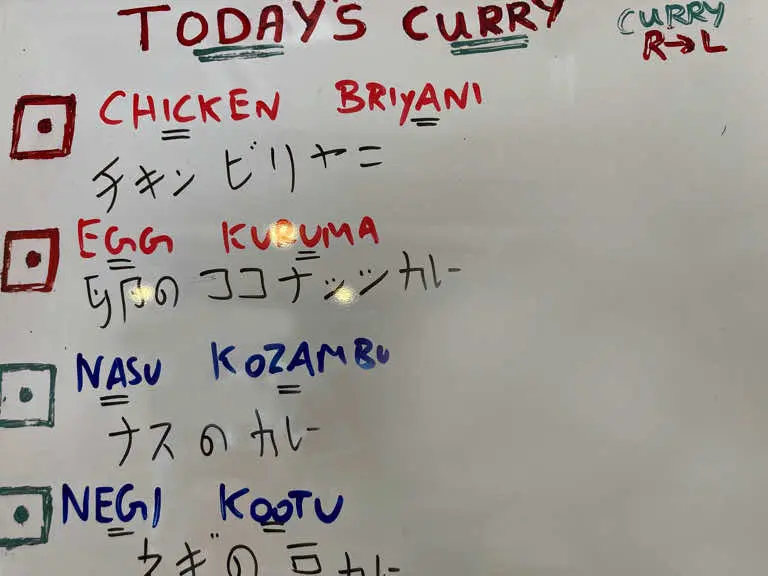 TODAY'S CURRY
CURRY
R→L
CHICKEN BRIYANI
チキン ビリヤニ
EGG KURUMA
卵の ココナッツ カレー
NASU KOZAMBU
ナスの カレー
NEGI KOOTU
ネギの 豆 カレー